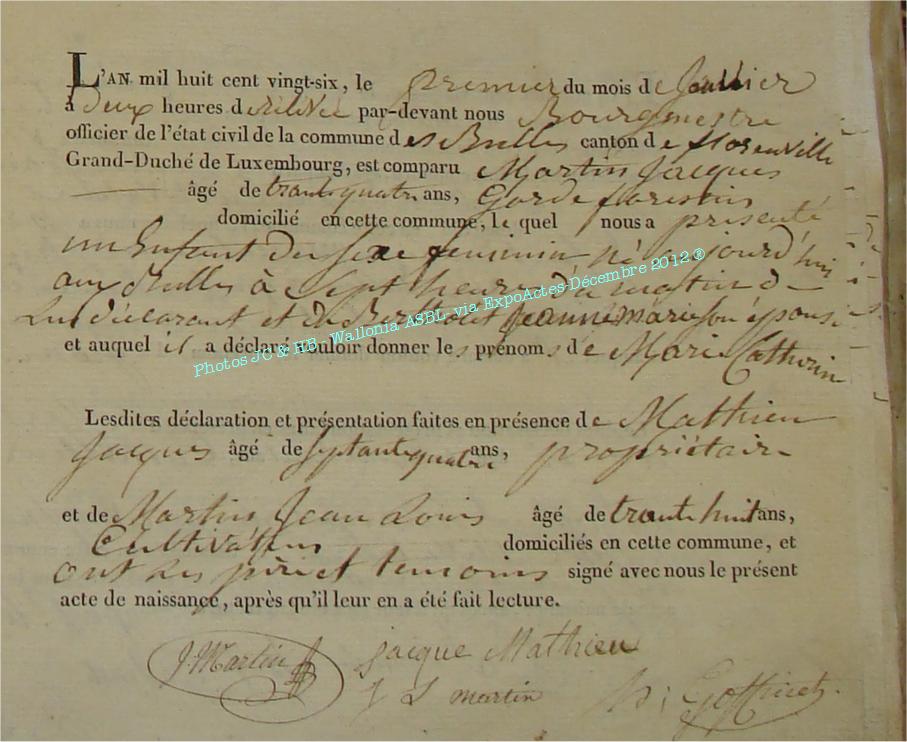 L'AN mil huit cent vingt-six, le premier du mois de Janvier
à deux heures de relevée par-devant nous Bourgmestre
officier de l'état civil de la commune des Bulles canton de florenville
Grand-Duché de Luxembourg, est comparu Martin Jacques
âgé de trante quatre ans, Garde forestin
domicilié en cette commune, le quel nous a présenté
un Enfant du sexe feminin né aujourd'hui
aux Bulles à sept heures du matin de
Lui déclarant et de jeanne marie son épouse
et auquel il a déclaré vouloir donner les prénoms de Marie Catherin
Lesdites déclaration et présentation faites en présence de Mathieu
Jacques âgé de septante quatre ans, propriétaire
et de Martin Jean Louis âgé de trante huit ans,
Cultivateurs domiciliés en cette commune, et
ont les père et temoins signé avec nous le présent
acte de naissance, après qu'il leur en a été fait lecture.
J. Martin jacque Mathieu
J L martin Goffinet
Photos JC & HB, Wallonia ASBL, via ExpoActes-Décembre 2012 ®